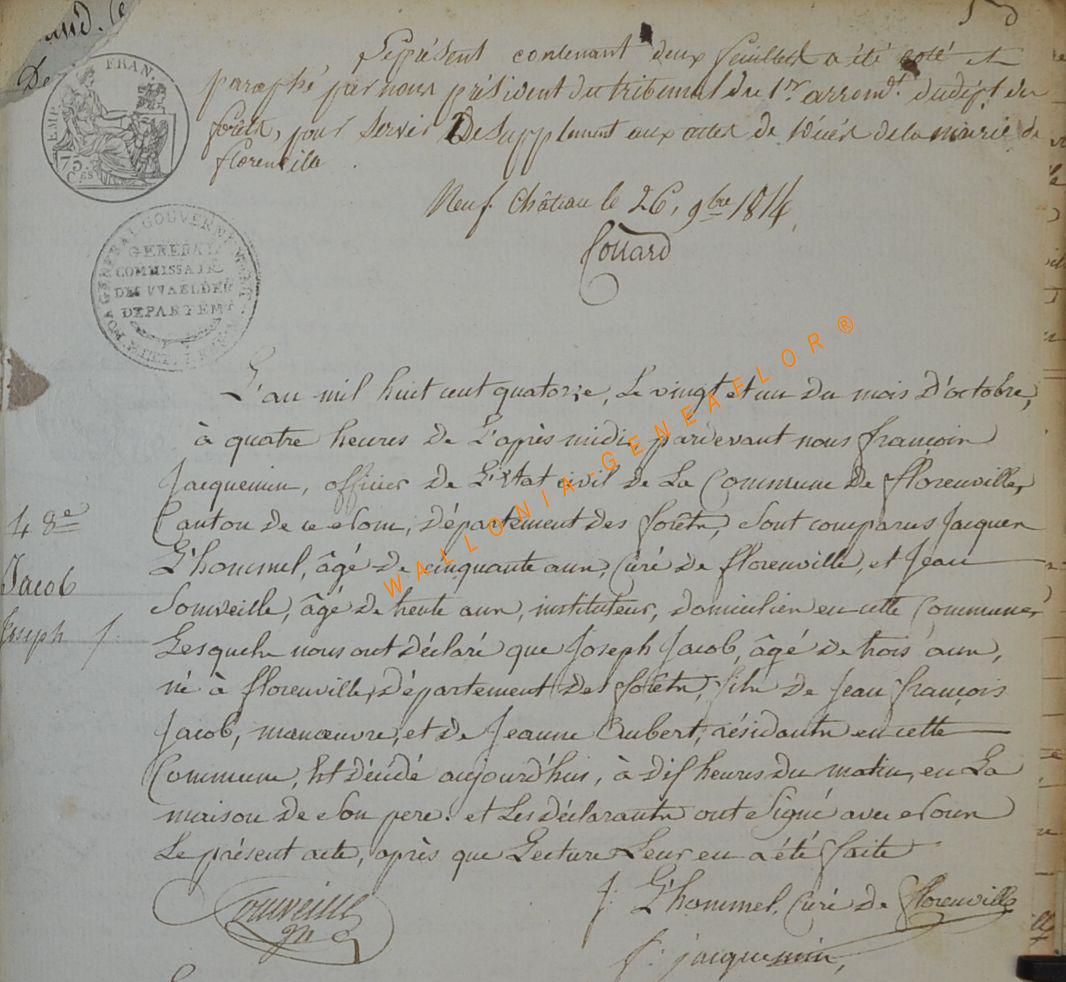 Le présent contenant deux feuillets a été coté et
paraphé par nous président du tribunal du 1er arrondt. du dépt des
forêts, pour servir de supplement aux actes de décés de la mairie de
florenville
Neuf-Château le 26, 9bre 1814
TIMP. FRAN.
75
Cs
GENERAL GOUVERNEMENT
GENERAL
COMMISSAIR
DES WAELDER
DEPARTEM
L'an mil huit cent quatorze, le vingt et un du mois d'octobre,
à quatre heures de L'après midi, pardevant nous françois
Jacquemin, officier de L'Etat civil de La Commune de florenville,
Canton de ce nom, département des forêts, Sont comparus Jacques
L'hommel, âgé de cinquante ans, Curé de florenville, et Jean
Somveille, âgé de trente ans, instituteur, domiciliés en cette Commune,
Lesquels nous ont déclaré que Joseph Jacob, âgé de trois ans,
né à florenville, département des forêts, fils de Jean françois
Jacob, manœuvre, et de Jeanne Aubert, résidants en cette
Commune, Est décédé aujourd'hui, à dix heures du matin, en La
maison de Son pere: et Les déclarants ont Signé avec nous
Le présent acte, après que Lecture Leur en a été faite
48e
Jacob
Joseph f.
Somveille
J: L'hommel, Curé de florenville
f: jacquemin,
WALLONIA-GENEAFLOR®